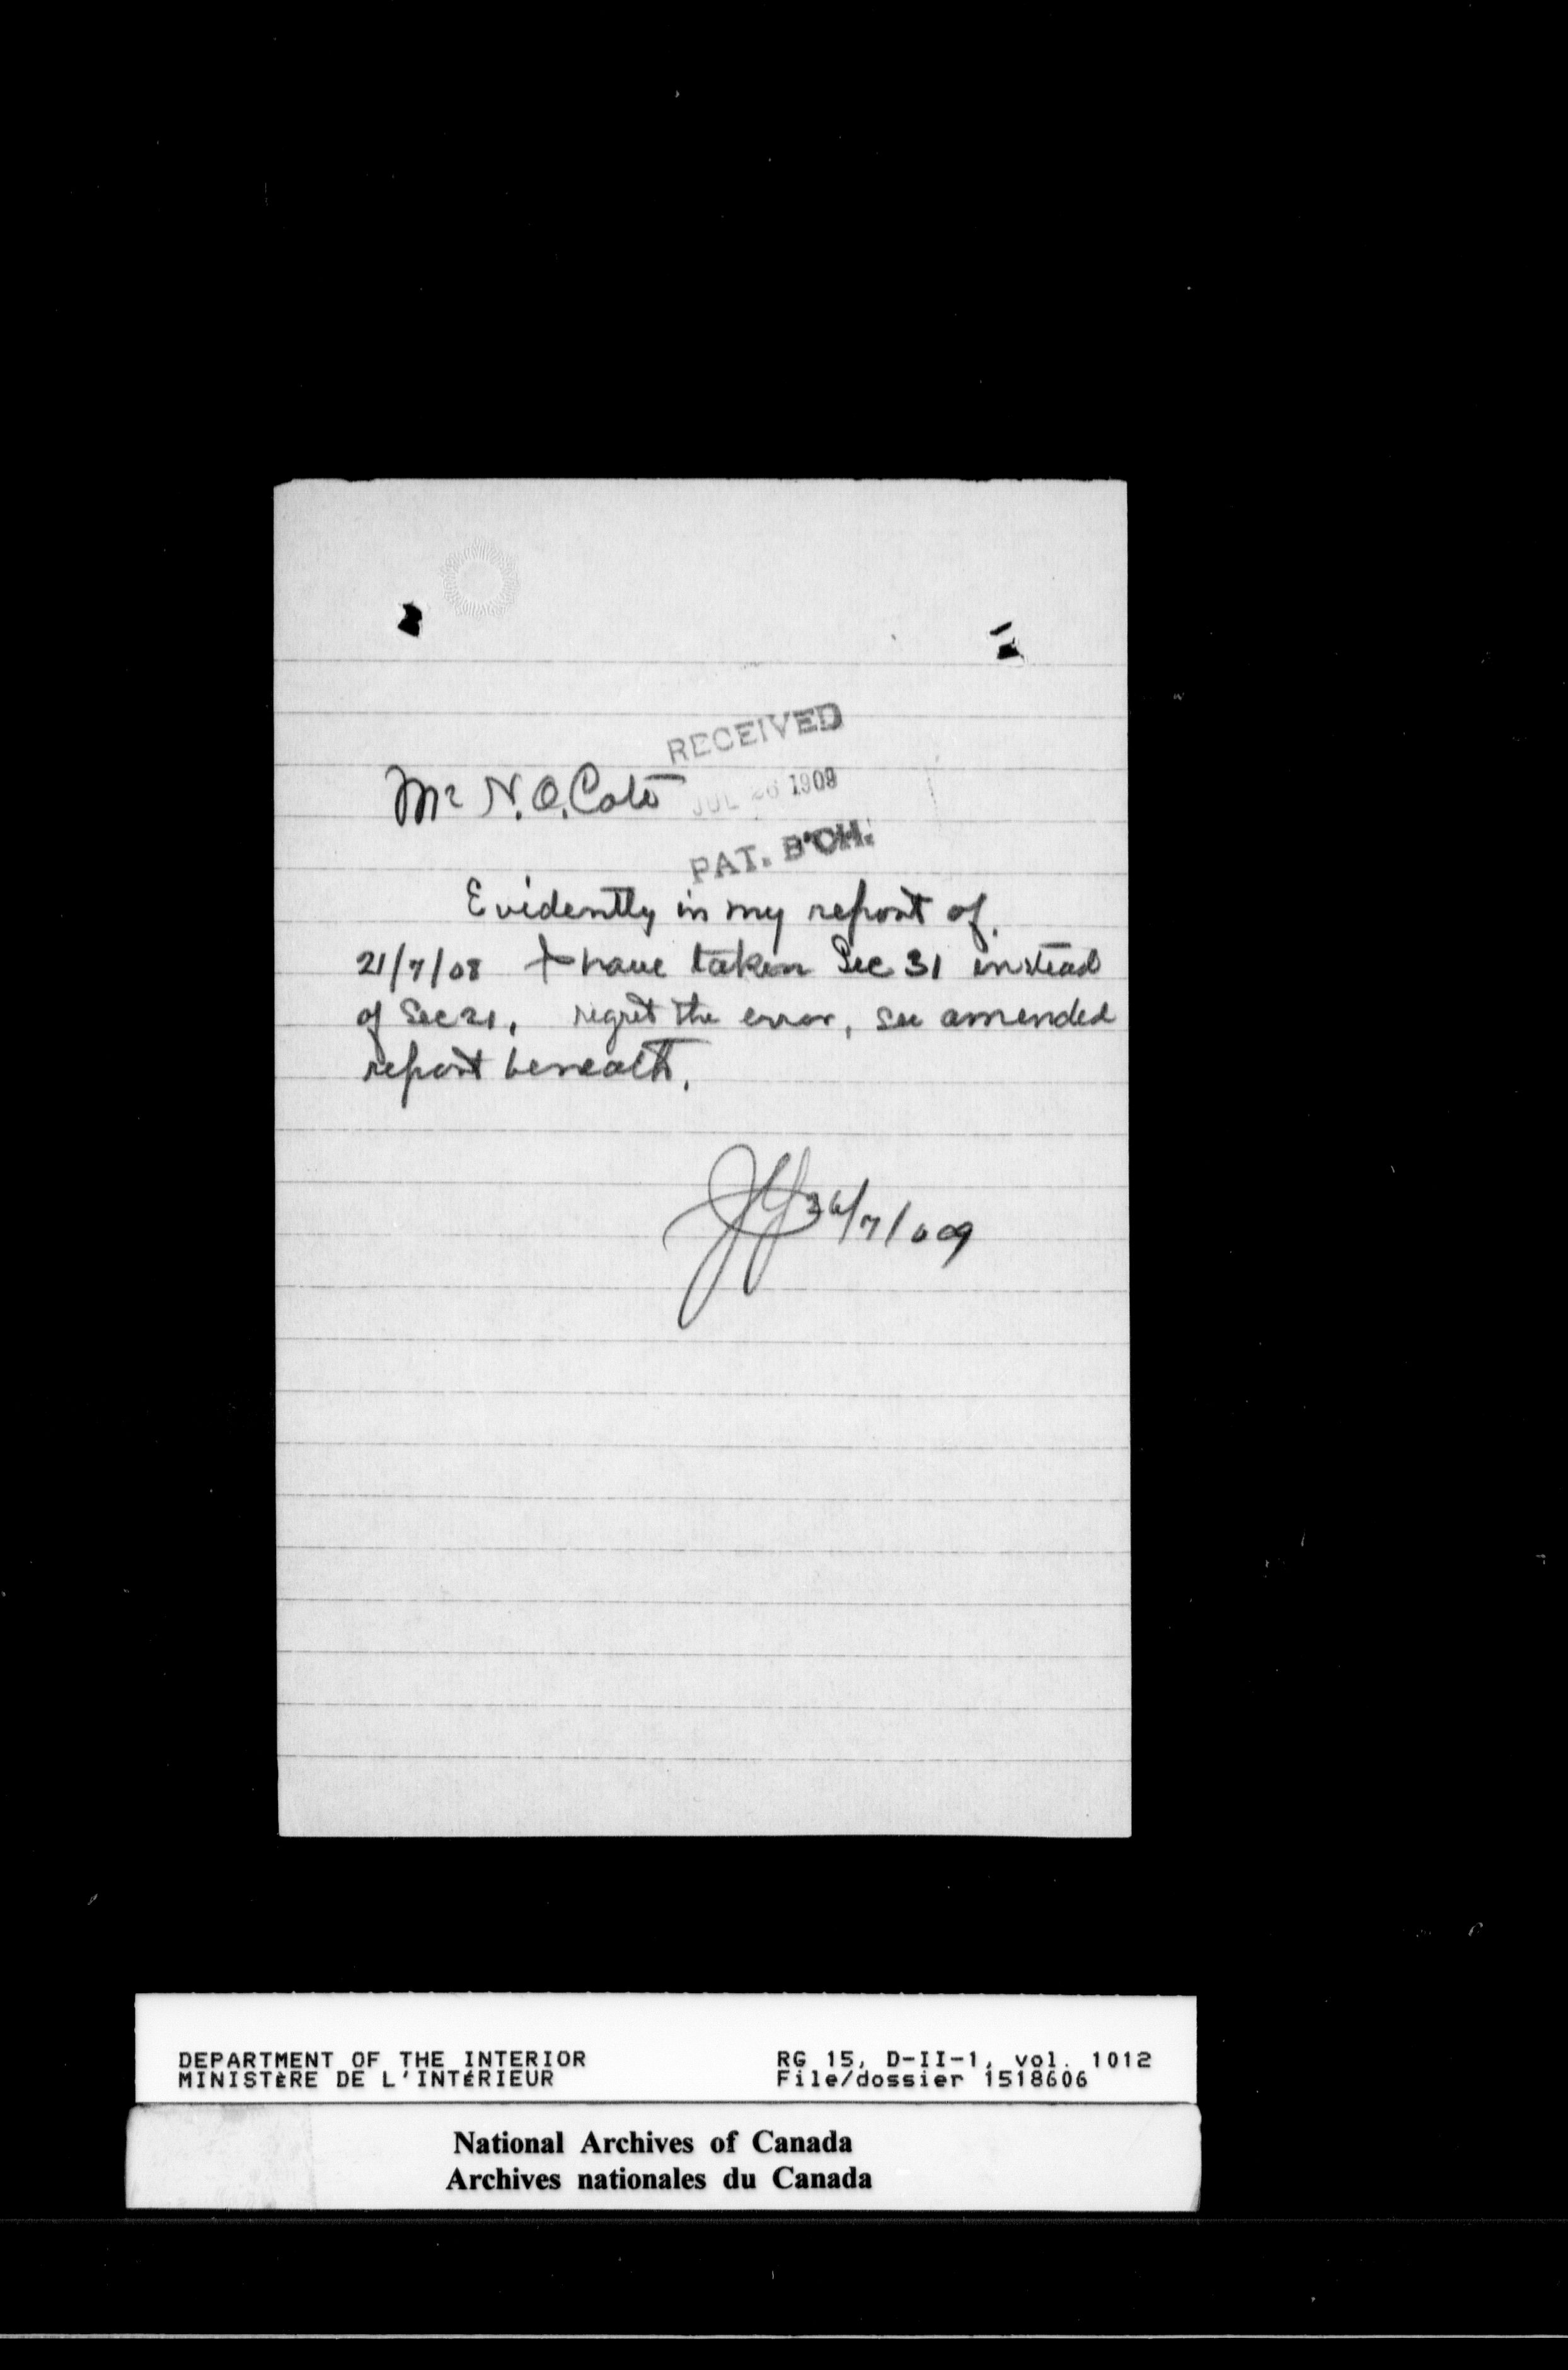 RECEIVED
JUL 26 1909
PAT. B'CH.
Mr N.O. Coté
Evidently in my report of
21/7/08 I have taken Sec 31 instead
of Sec 21, regret the error, see amended
report beneath.
26/7/09
DEPARTMENT OF THE INTERIOR
MINISTÈRE DE L'INTÉRIEUR
RG 15, D-II-1, vol. 1012
File/dossier 1518606
National Archives of Canada
Archives nationales du Canada